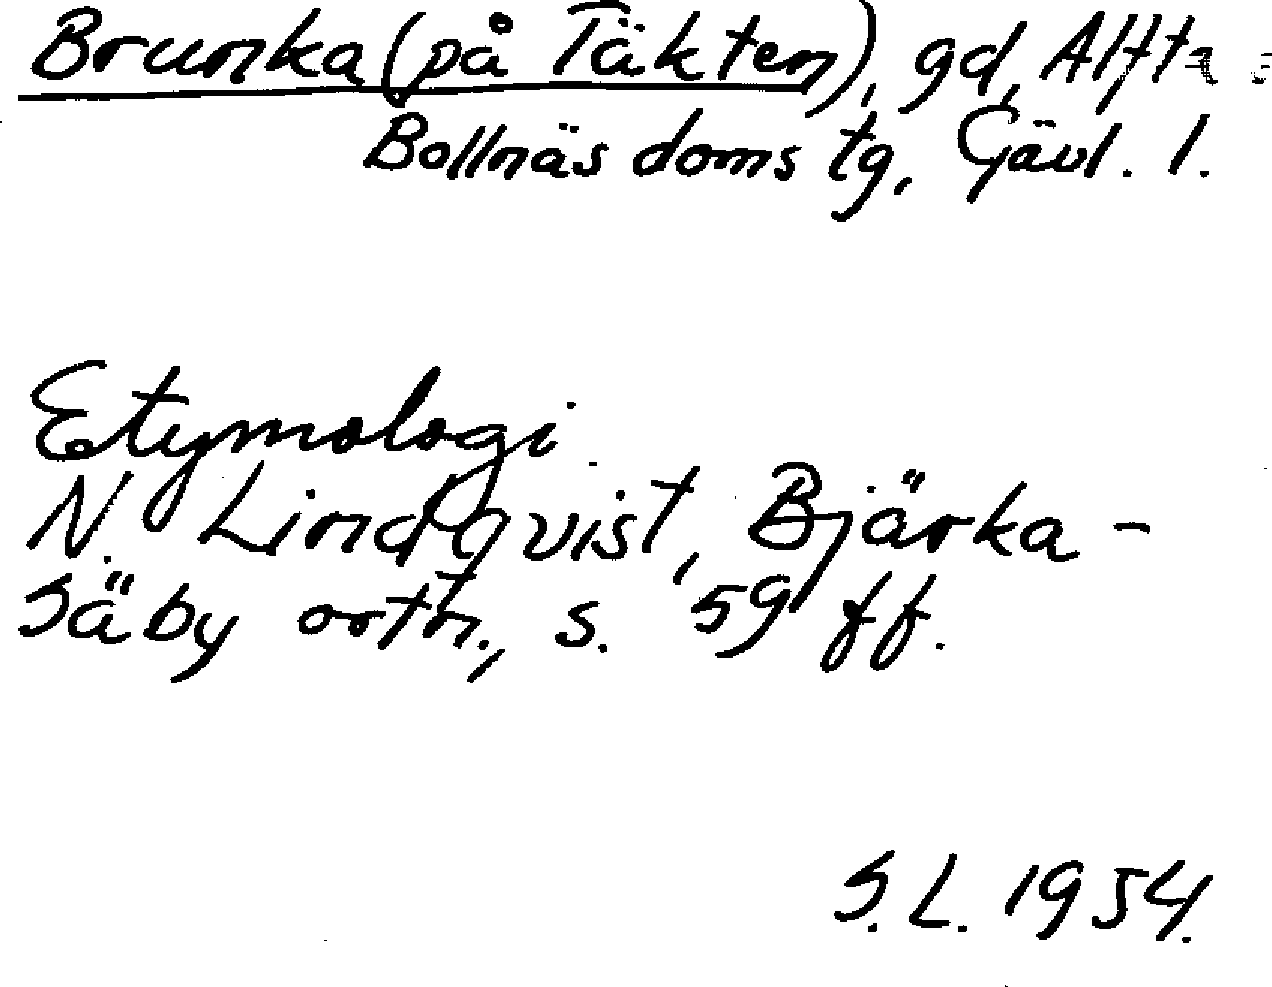 Brunka (på Täkten), gd, Alfta
Bollnäs doms tg, Gävl. l.
Etymologi
N. Lindqvist, Bjärka-
Säby ortn., s. 59 ff.
S.L. 1954.